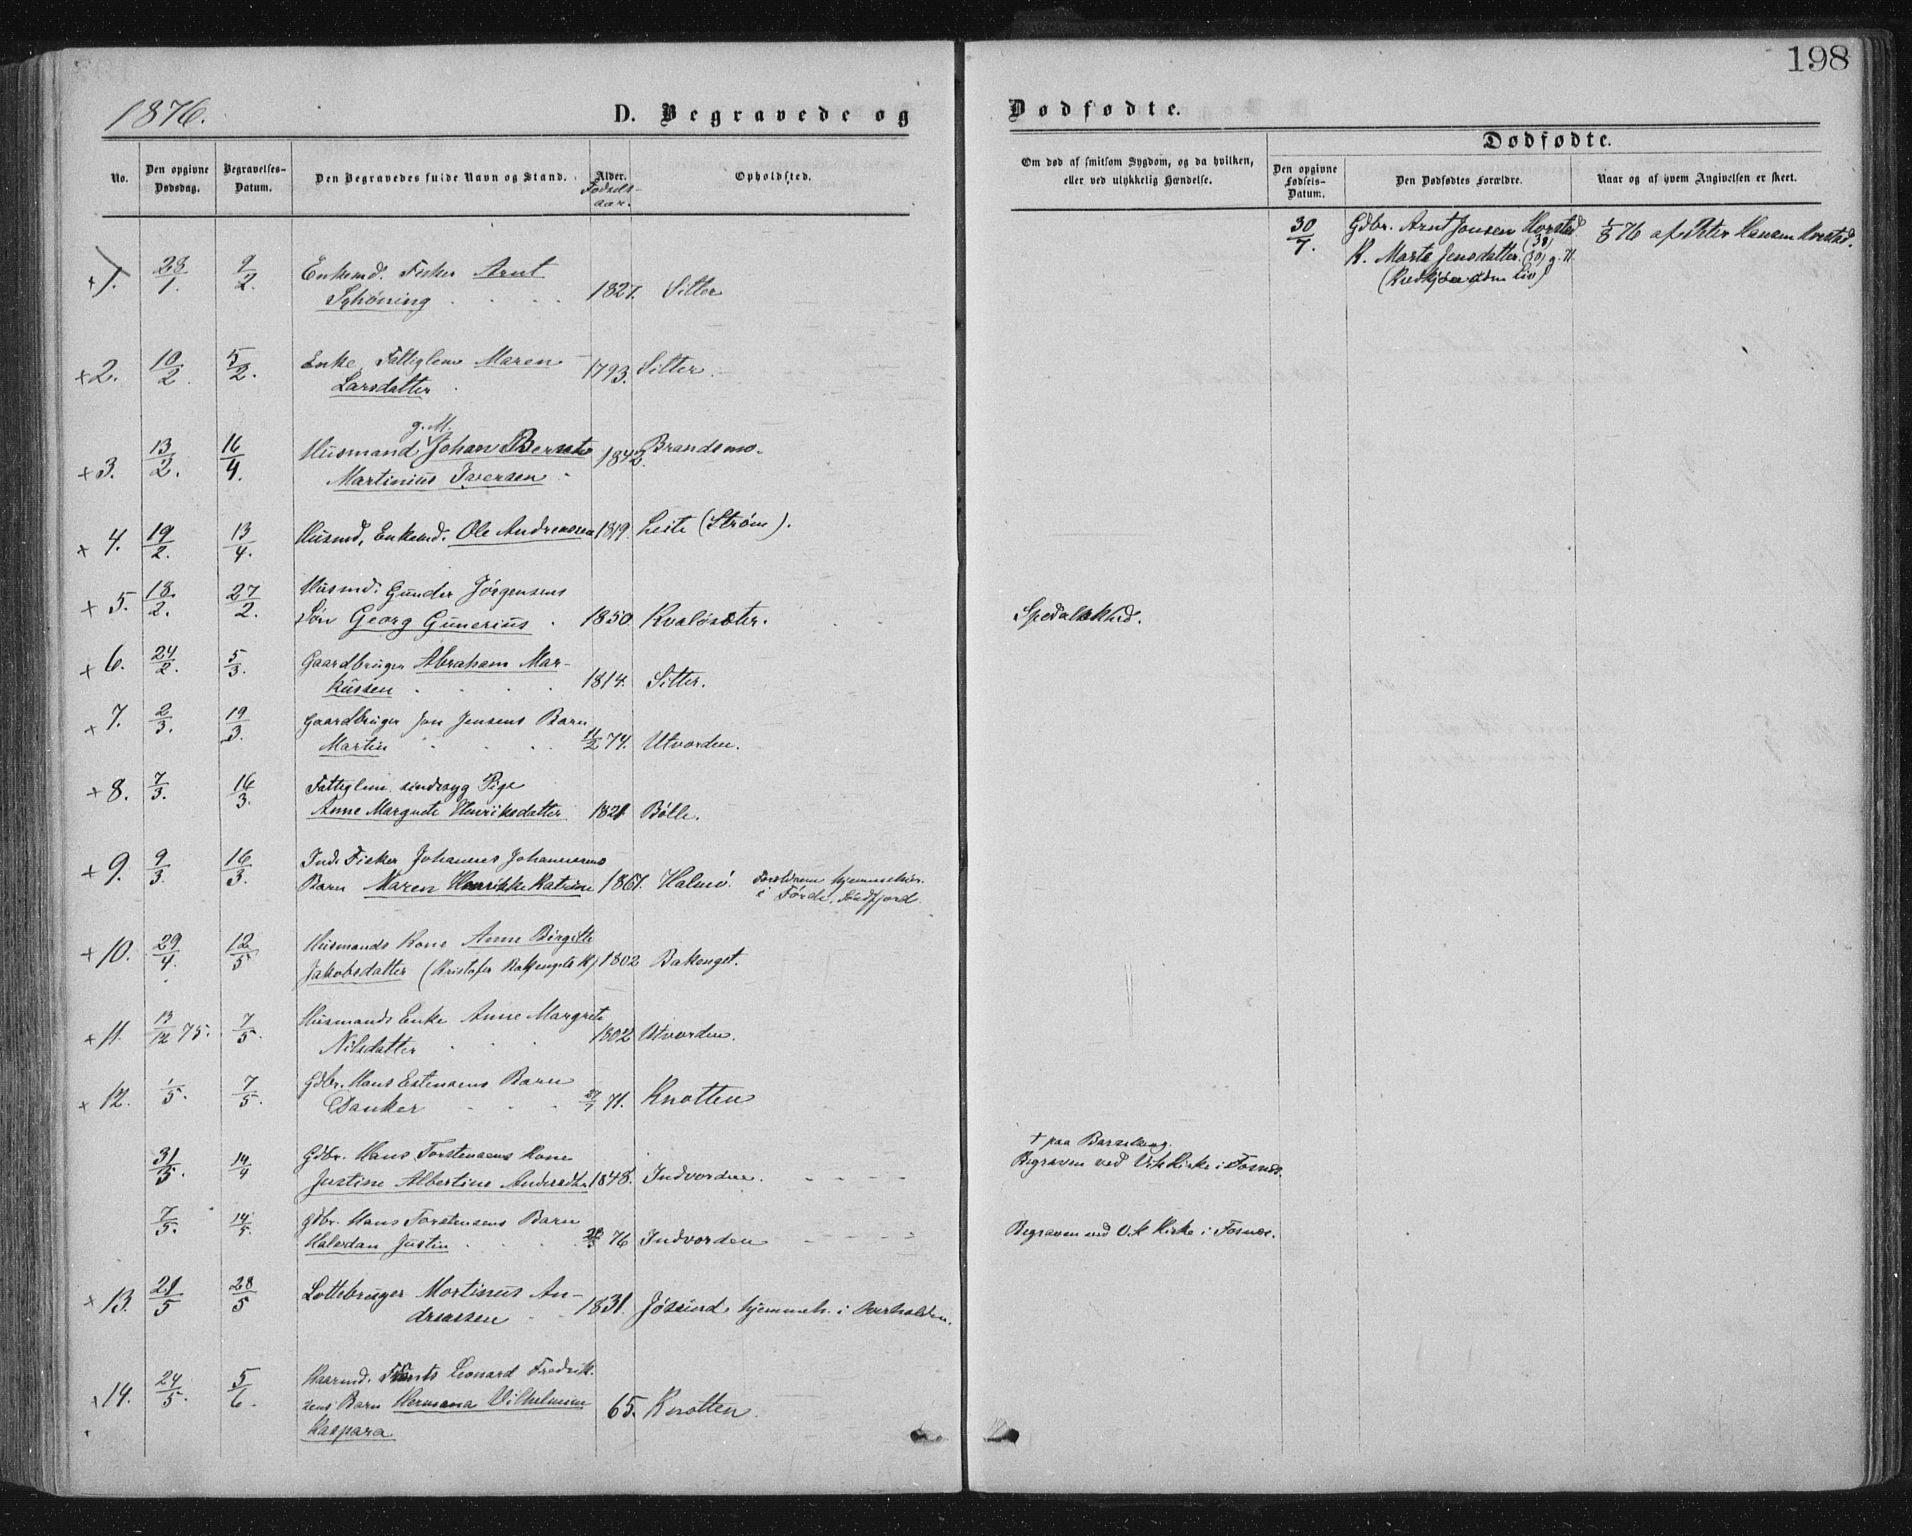 198
1876.
D. Begravede og Dødfødte.
No.
Den opgivne Dødsdag.
Begravelses-Datum.
Den Begravedes fulde Navn og Stand.
Alder.
Fødselsaar.
Opholdsted.
Om død af smitsom Sygdom, og da hvilken, eller ved ulykkelig Hændelse.
Dødfødte.
Den opgivne Fødsels-Datum.
Den Dødfødtes Forældre.
Naar og af hvem Angivelsen er skeet.
30/7. Gdbr. Arnt Jonsen Horstad 1/8 76 af Peter Hansen
(38)
K. Marte Jensdatter (30) g. M.
+1. 28/1. 9/2 Enkemd. Fisker Arnt
Schöning 1827. Sitter
+2. 10/2. 5/2. Enke, Fattiglem Maren
Larsdatter 1793. Sitter.
g. M.
+3. 13/2. 16/4. Husmand Johan
Martinius Iversen 1842. Brandsmo.
+4. 19/2. 13/4. Husmd, Enkemd. Ole Andreassen 1819. Leite (Strøm).
+5. 18/2. 27/2. Husmd. Gunder Jørgensens
Søn Georg Gunerius 1850. Kvaløsæter. Spedalskhed.
+6. 24/2. 5/3. Gaardbruger Abraham Mar-
kussen 1814. Sitter.
+7. 2/3. 19/3. Gaardbruger Jon Jensens Barn
Martin 74. Utvorden.
+8. 7/3. 16/3. Fattiglem sindssyg Pige
Anne Margrete Henriksdatter 1821 Bølle.
+9. 9/3. 16/3. Ind. Fisker Johannes Johannesens
Barn Maren Henrikke Katrine 1867. Halmø. Forældrene hjemmehør.
i Førde, Søndfjord
+10. 29/4. 12/5 Husmands Kone Anne Birgitte
Jakobsdatter (Kristofer Bakengets K) 1802 Bakenget.
+11. 13/12 75. 7/5. Husmands Enke Anne Margrete
Nilsdatter 1802 Utvorden.
+12. 1/5. 7/5. Gdbr. Hans Estensens Barn
Danker 71. Knotten
+ paa Barselseng.
31/3. 14/4 Gdbr. Hans Torstensens Kone Begraven ved Vik Kirke i Fosnes.
Justine Albertine Andersdtr 1848. Indvorden.
7/5. 14/5. Gdbr. Hans Torstensens Barn
Halvdan Justin 76 Indvorden Begraven ved Vik Kirke i Fosnes.
+13. 21/5 28/5 Lottebruger Mortinus An-
dreassen 1831. Jøssund hjemmeh. i Overhalden.
+14. 24/5. 5/6. Leonard Fredrik-
sens Barn Hermana Vilhelmine
Kaspara 65. Knotten.